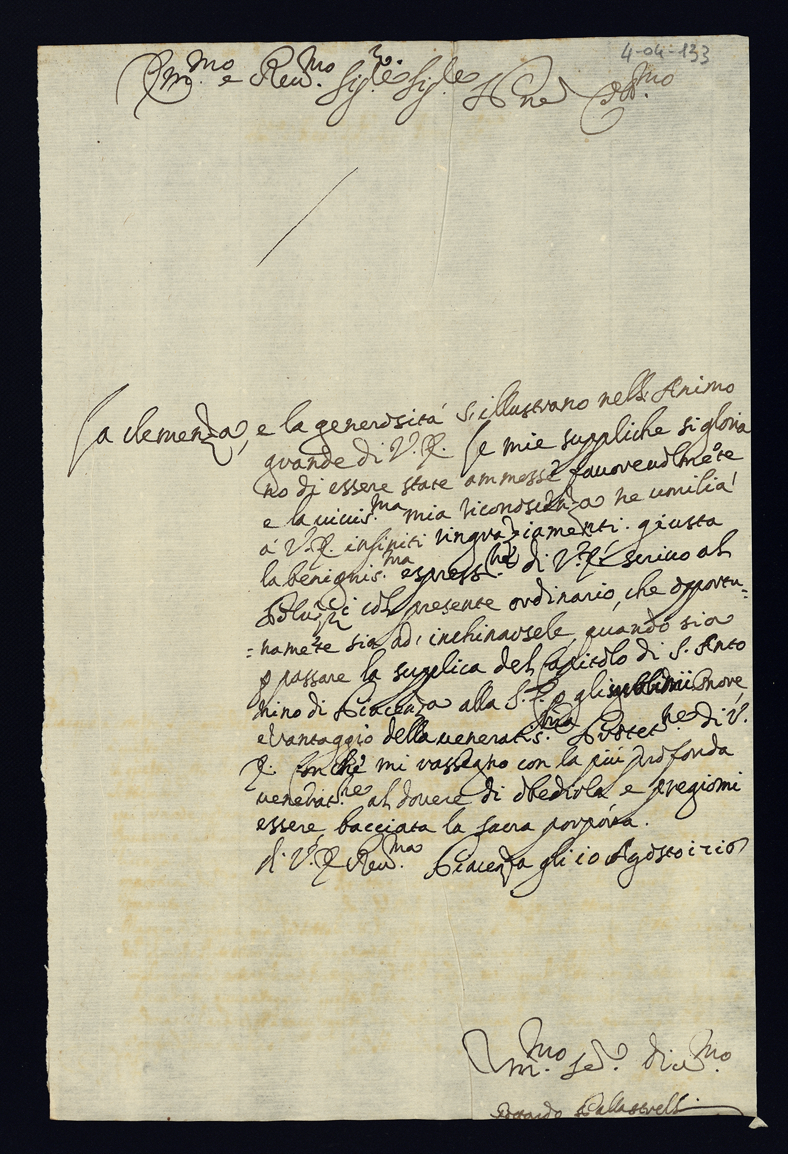 4-04-133
Em.mo e Rev.mo Sig.re Sig.re P.ne Col.mo
La clemenza, e la generosità s'illustrano nell'Animo
grande di V.E. Le mie suppliche si gloria
no di essere state ammesse favorevolmete
e la viviss.ma mia riconoscenza ne umilia
á V.E. infiniti ringraziamenti. giusta
la benignis.ma espress.ne di V.E. scrivo al
col presente ordinario, che opportu=
=namete sia ad' inchinarsele, quando sia
p passare la suplica del Capitolo di S. Anto
nino di Piacenza alla S.tà, p gli onore,
e vantaggio della veneratis.ma Protet.ne di V.
E. Con che mi rassegno con la più profonda
venerat.ne al dovere di obedirla e pregiomi
essere bacciata la sacra porpora.
di V.E. Rev.ma Piacenza gli 10 Agosto 1710
Um.mo Se.r Div.mo
Pallastrelli